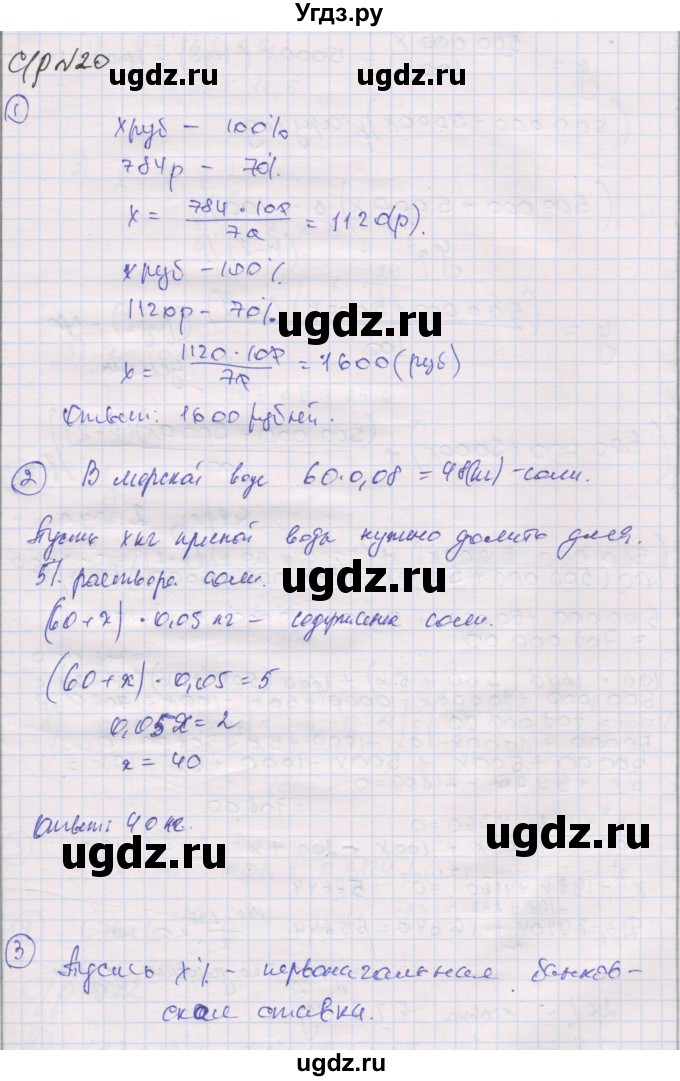 Угдз.ру
С/р №20
ugdz.ru ugdz.ru
1
x руб – 100%
784р – 70%.
x = 784 · 100 / 70 = 1120(р).
x руб – 100%.
1120р – 70%.
ugdz.ru
x = 1120 · 100 / 70 = 1600 (руб)
Ответ: 1600 рублей.
ugdz.ru ugdz.ru
2 В морской воде 60·0,08 = 48(кг) – соли.
Пусть x кг пресной воды нужно долить для
5%. раствора соли.
ugdz.ru
(60+x) · 0,05 кг – содержание соли.
(60+x) · 0,05 = 5
ugdz.ru
0,05x = 2
x = 40
Ответ: 40 кг.
ugdz.ru ugdz.ru
3 Пусть x% – первоначальная банков-
ская ставка.
ugdz.ru
ugdz.ru